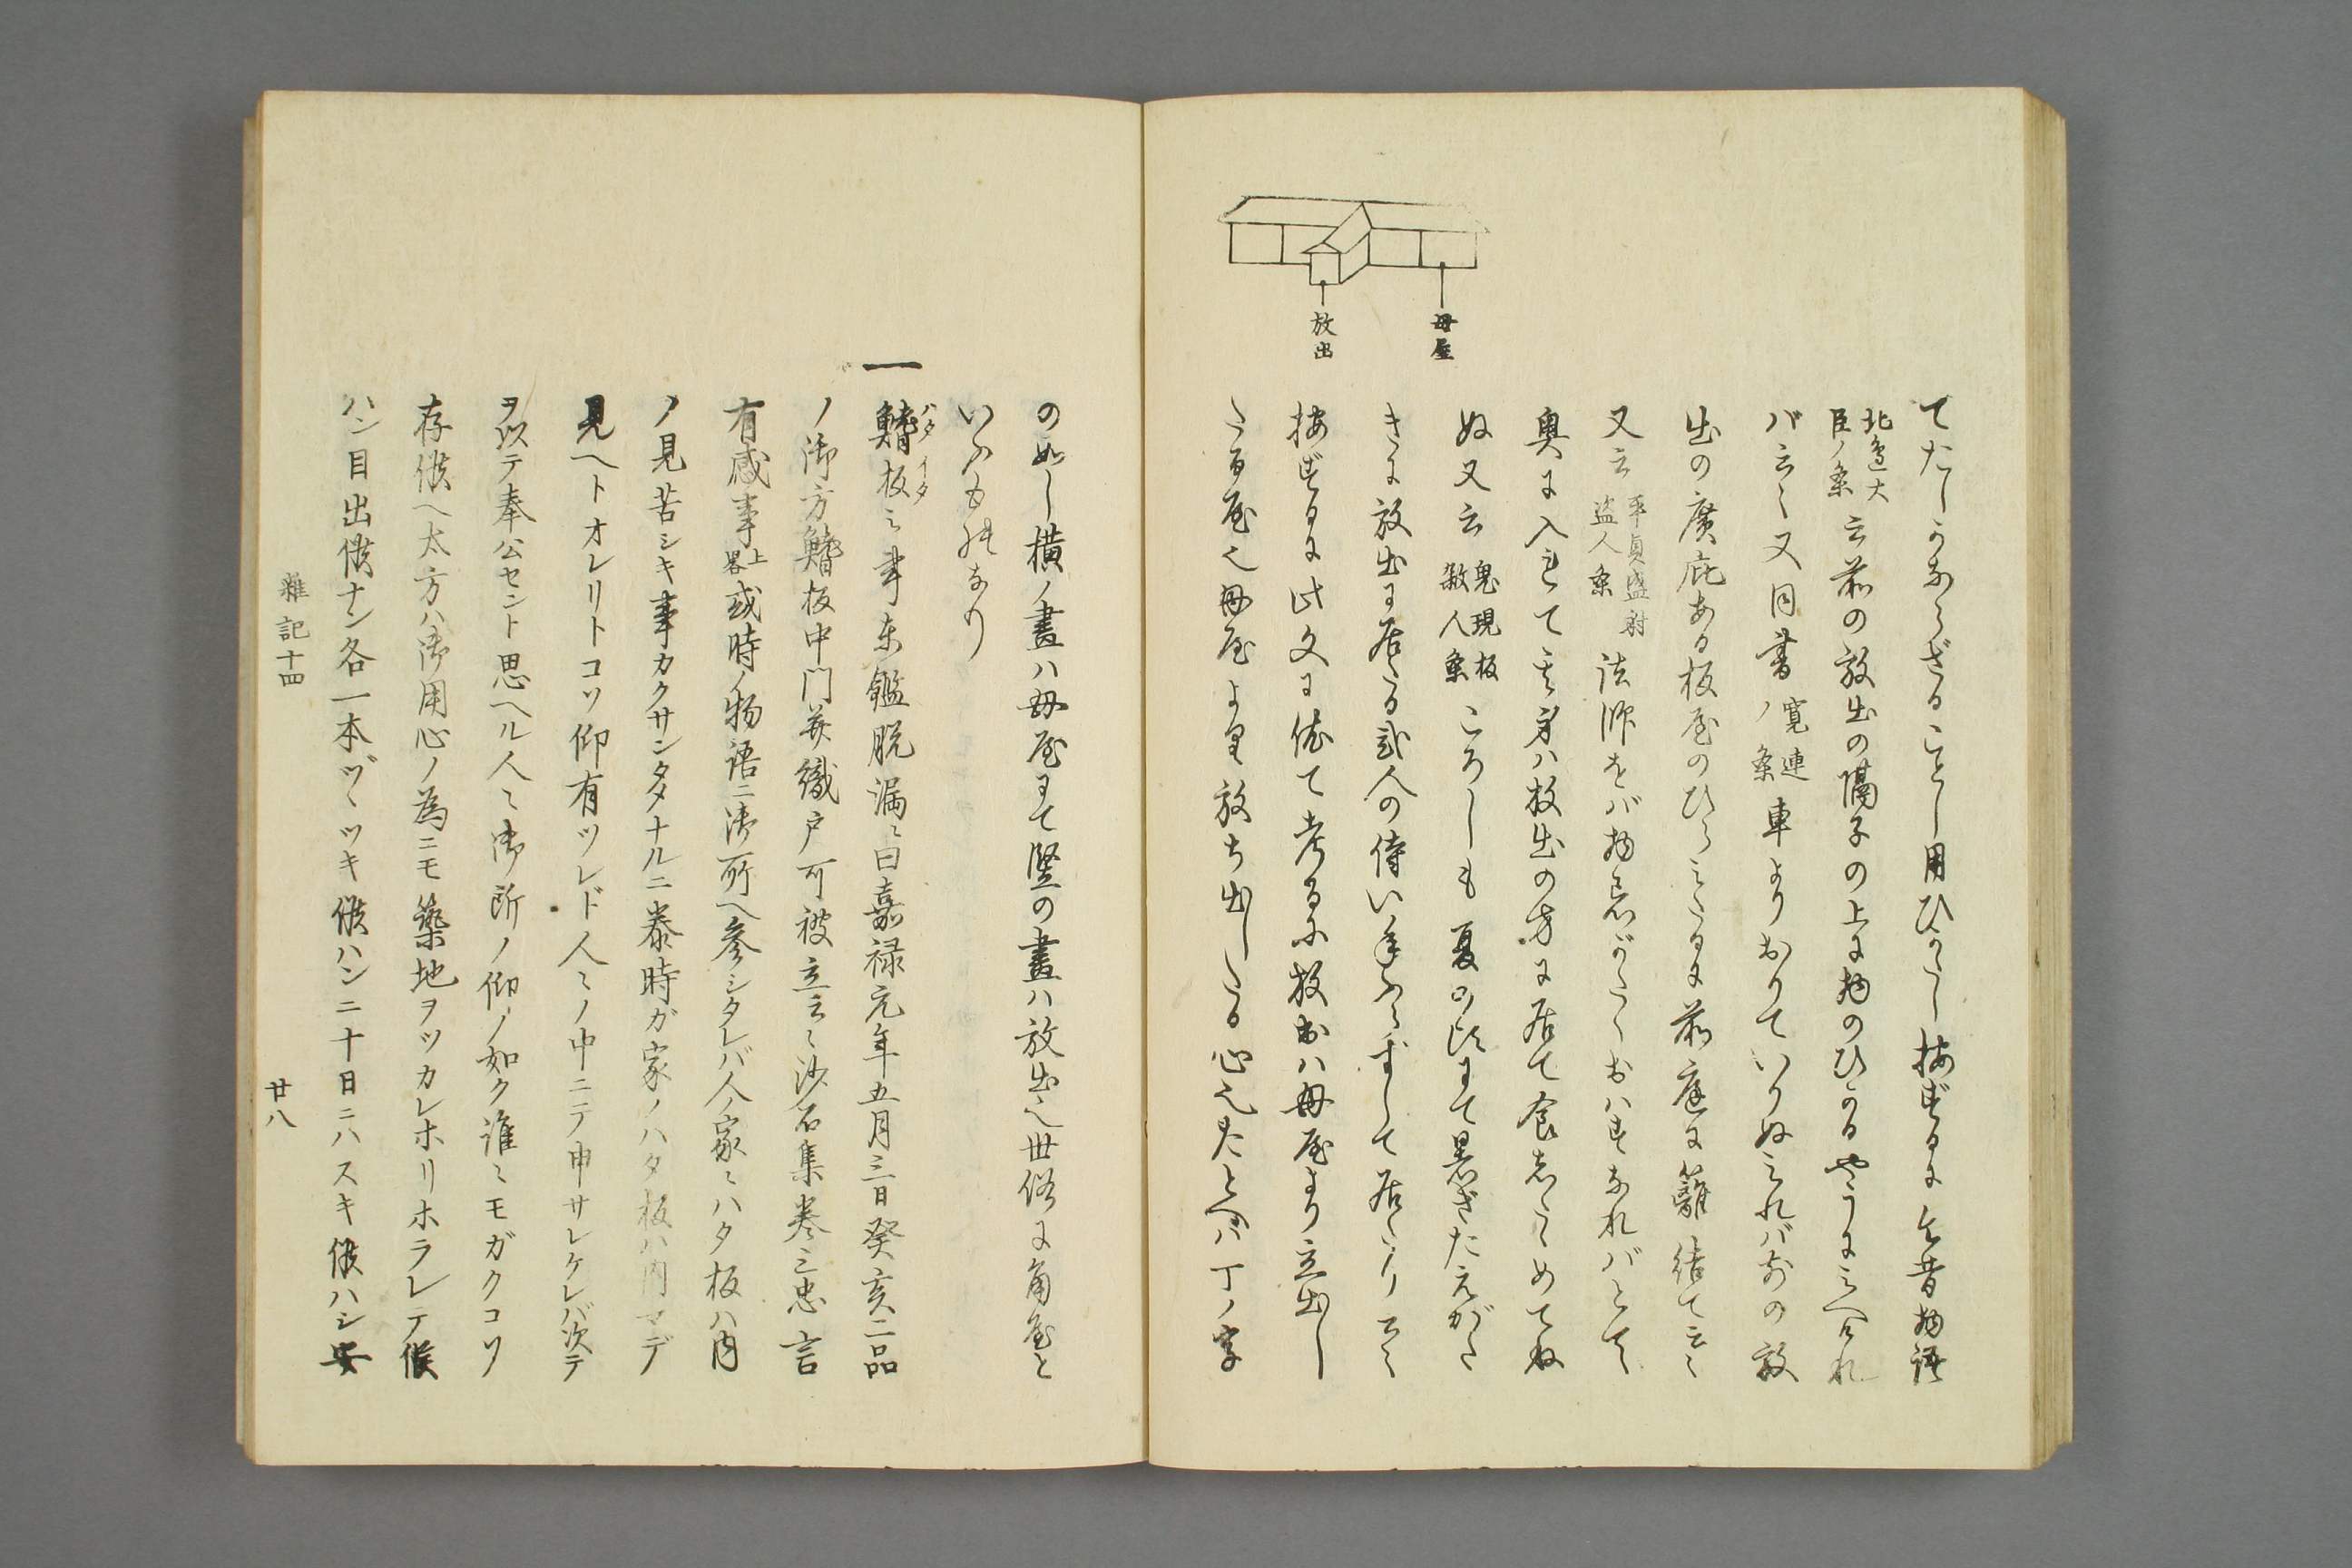 てたしかならざることし用ひがたし按ずるに今昔物語
北邊大臣ノ条云前の放出の隔子の上に物のひかるやうにみへければ
云〻又同書寛蓮ノ条車よりおりていりぬみればまへの放
出の廣庇ある板屋のひらみたるに前庭に籬結て云〻
又云平貞盛射盗人条法師をバ物忌がたくおハすなれバとて
奥に入れて我身ハ放出の方に居て食したゝめてね
ぬ又云鬼現板殺人条ころしも夏の比にて暑さたえがた
きに放出に居たる二人の侍いねずして居たり云〻
按ずるに此文に依て考るに放出ハ母屋より立出し
たる屋也母屋より放ち出したる心也たとへバ丁ノ字
母屋
放出
の如し横ノ畫ハ母屋にて竪の畫ハ放出也世俗に角屋と
いふものなり
一鰭板之事東鑑脱漏ニ曰嘉禄元年五月三日癸亥二品
ハタイタ
ノ御方鰭板中門并織戸可被立云〻沙石集巻三忠言
有感事上畧或時ノ物語ニ御所ヘ参シタレバ人ノ家〻ハタ板ハ内
ノ見苦シキ事カクサンタメナルニ泰時ガ家ノハタ板ハ内マデ
見ヘトオレリトコソ仰有ツレド人〻ノ中ニテ申サレケレバ次テ
ヲ以テ奉公セント思ヘル人〻御所ノ仰ノ如ク誰〻モガクコソ
存候ヘ太方ハ御用心ノ為ニモ築地ヲツカレホリホラレテ候
ハン目出候ナン各一本ヅヽツキ候ハン二十日ニハスギ候ハシ安
雜記十四
廿八